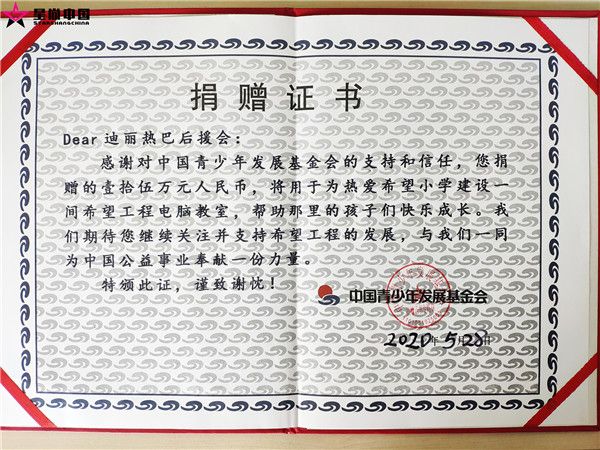 星尚中国
STARSHANGCHINA
捐赠证书
Dear 迪丽热巴后援会：
感谢对中国青少年发展基金会的支持和信任，您捐
赠的壹拾伍万元人民币，将用于为热爱希望小学建设一
间希望工程电脑教室，帮助那里的孩子们快乐成长。我
们期待您继续关注并支持希望工程的发展，与我们一同
为中国公益事业奉献一份力量。
特颁此证，谨致谢忱！
中国青少年发展基金会
2020年5月28日